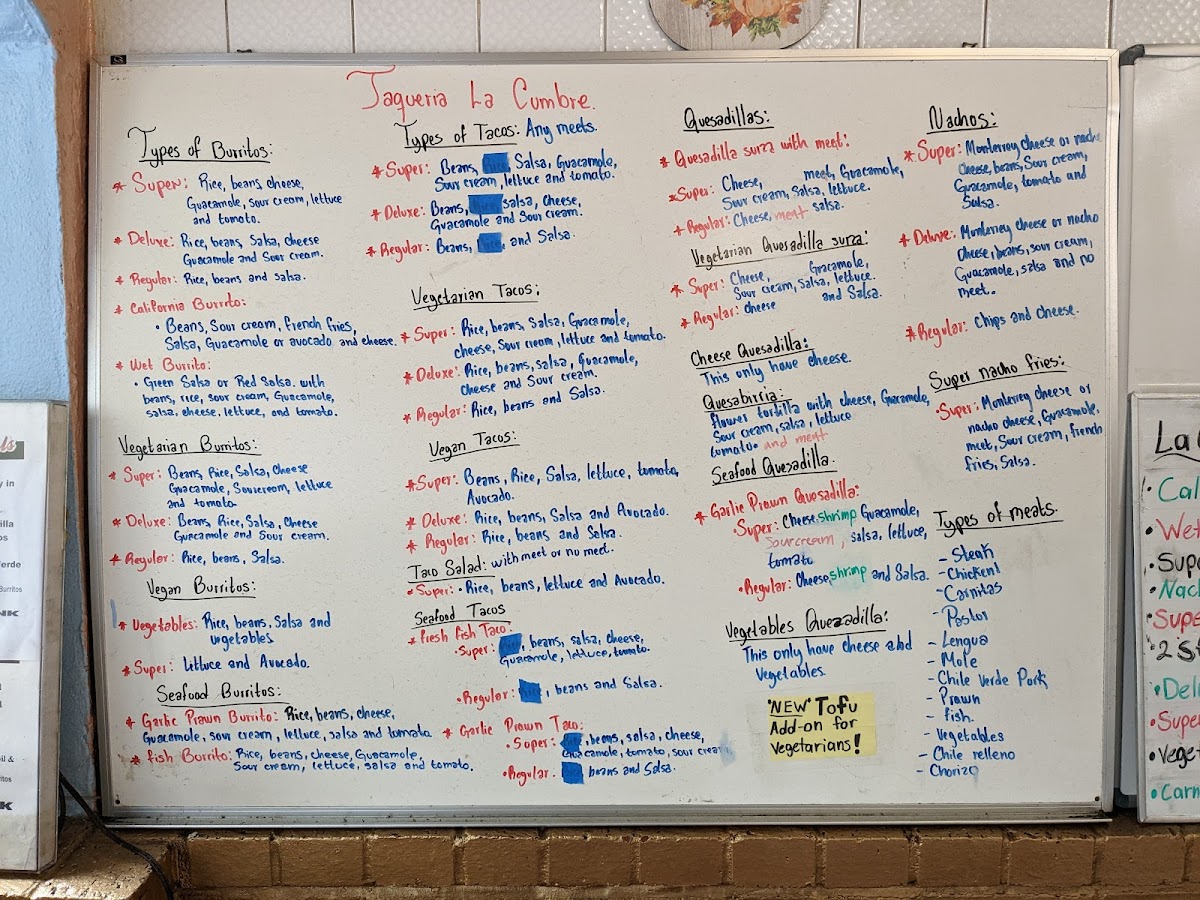 Taqueria La Cumbre.
Types of Burritos:
* Super: Rice, beans, cheese,
Guacamole, sour cream, lettuce
and tomato.
* Deluxe: Rice, beans, Salsa, cheese
Guacamole and Sour cream.
* Regular: Rice, beans and salsa.
* California Burrito:
• Beans, Sour cream, French fries,
Salsa, Guacamole or avocado and cheese.
* Wet Burrito:
• Green Salsa or Red Salsa. with
beans, rice, sour cream, Guacamole,
salsa, cheese, lettuce, and tomato.
Vegetarian Burritos:
* Super: Beans, Rice, Salsa, cheese
Guacamole, Sourcream, lettuce
and tomato
* Deluxe: Beans, Rice, Salsa, Cheese
Guacamole and Sour cream.
* Regular: Rice, beans, Salsa.
Vegan Burritos:
* Vegetables: Rice, beans, Salsa and
vegetables
* Super: lettuce and Avocado.
Seafood Burritos:
* Garlic Prawn Burrito: Rice, beans, cheese,
Guacamole, sour cream, lettuce, salsa and tomato
* fish Burrito: Rice, beans, cheese, Guacamole,
Sour cream, lettuce, salsa and tomato.
Types of Tacos: Any meets.
* Super: Beans, Salsa, Guacamole,
Sour cream, lettuce and tomato.
* Deluxe: Beans, salsa, cheese,
Guacamole and Sour cream.
* Regular: Beans, and Salsa.
Vegetarian Tacos:
* Super: Rice, beans, Salsa, Guacamole,
cheese, Sour cream, lettuce and tomato.
* Deluxe: Rice, beans, salsa, Guacamole,
cheese and Sour cream.
* Regular: Rice, beans and Salsa.
Vegan Tacos:
* Super: Beans, Rice, Salsa, lettuce, tomato,
Avocado.
* Deluxe: Rice, beans, Salsa and Avocado.
* Regular: Rice, beans and Salsa.
Taco Salad: with meet or no meet.
• Super: • Rice, beans, lettuce and Avocado.
Seafood Tacos
* fresh fish Taco:
• Super: , beans, salsa, cheese,
Guacamole, lettuce, tomato.
• Regular: , beans and Salsa.
* Garlic Prawn Taco:
• Super: , beans, salsa, cheese,
Guacamole, tomato, sour cream
• Regular. beans and Salsa.
Quesadillas:
* Quesadilla suiza with meet:
* Super: Cheese, meet, Guacamole,
Sour cream, Salsa, lettuce.
* Regular: Cheese, meat salsa.
Vegetarian Quesadilla suiza:
* Super: Cheese, Guacamole,
Sour cream, Salsa, lettuce.
* Regular: cheese and Salsa.
Cheese Quesadilla:
This only have cheese.
Quesabirria:
flower tortilla with cheese, Guacamole,
Sour cream, salsa, lettuce
tomato. and meat
Seafood Quesadilla.
* Garlic Prawn Quesadilla:
• Super: Cheese, shrimp Guacamole,
Sour cream, salsa, lettuce,
tomato
• Regular: Cheese, shrimp and Salsa.
Vegetables Quezadilla:
This only have cheese and
Vegetables.
"NEW" Tofu
Add-on for
Vegetarians!
Nachos:
* Super: Monterrey cheese or nacho
cheese, beans, Sour cream,
Guacamole, tomato and
Salsa.
* Deluxe: Monterrey cheese or nacho
cheese, beans, sour cream,
Guacamole, salsa and no
meet.
* Regular: Chips and cheese.
Super nacho fries:
• Super: Monterrey cheese or
nacho cheese, Guacamole,
meet, Sour cream, french
fries, Salsa.
Types of meats.
- Steak
- Chicken
- Carnitas
- Pastor
- Lengua
- Mole
- Chile Verde Pork
- Prawn
- fish.
- Vegetables
- Chile relleno
- Chorizo
La
• Cal
• Wet
• Supe
• Nac
• Supe
• 2 St
• Delu
• Supe
• Vege
• Carn